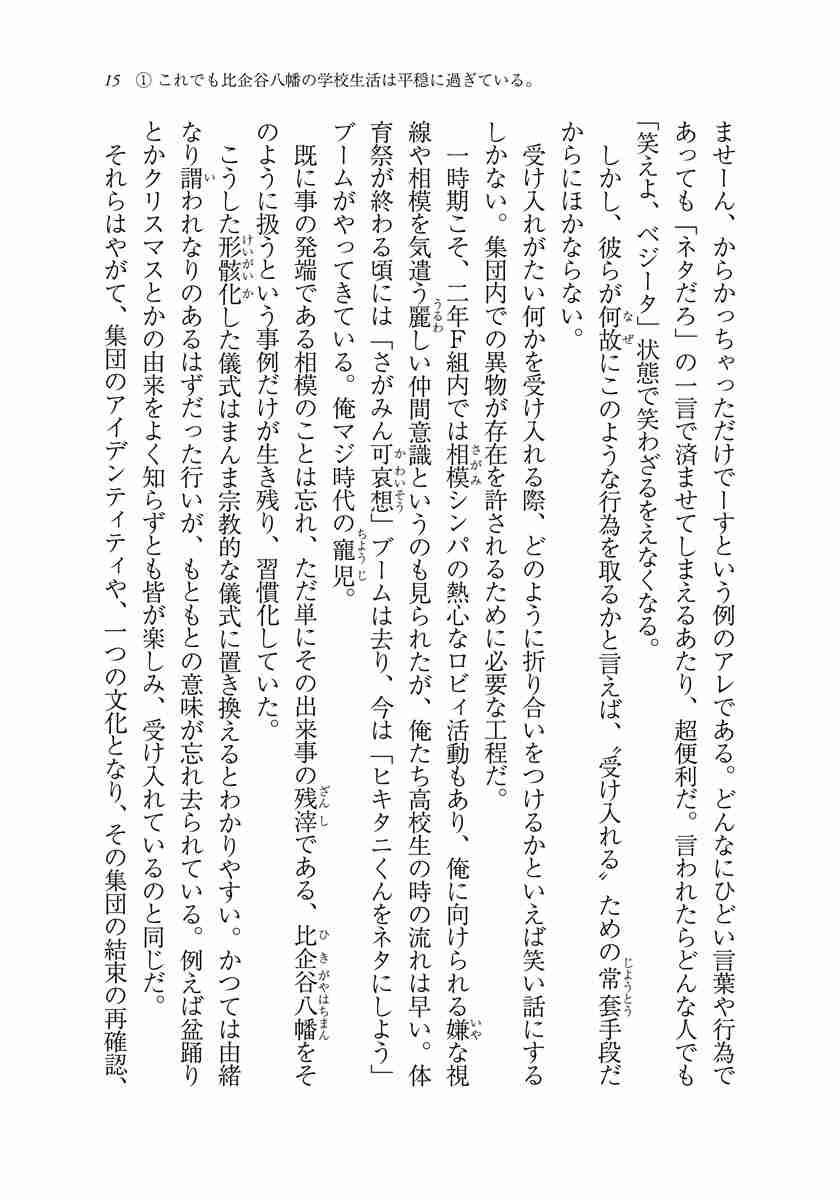 15　① これでも比企谷八幡の学校生活は平穏に過ぎている。
ませーん、からかっちゃっただけでーすという例のアレである。どんなにひどい言葉や行為で
あっても「ネタだろ」の一言で済ませてしまえるあたり、超便利だ。言われたらどんな人でも
「笑えよ、ベジータ」状態で笑わざるをえなくなる。
　しかし、彼らが何故にこのような行為を取るかと言えば、〝受け入れる〟ための常套手段だ
からにほかならない。
　受け入れがたい何かを受け入れる際、どのように折り合いをつけるかといえば笑い話にする
しかない。集団内での異物が存在を許されるために必要な工程だ。
　一時期こそ、二年Ｆ組内では相模シンパの熱心なロビィ活動もあり、俺に向けられる嫌な視
線や相模を気遣う麗しい仲間意識というのも見られたが、俺たち高校生の時の流れは早い。体
育祭が終わる頃には「さがみん可哀想」ブームは去り、今は「ヒキタニくんをネタにしよう」
ブームがやってきている。俺マジ時代の寵児。
　既に事の発端である相模のことは忘れ、ただ単にその出来事の残滓である、比企谷八幡をそ
のように扱うという事例だけが生き残り、習慣化していた。
　こうした形骸化した儀式はまんま宗教的な儀式に置き換えるとわかりやすい。かつては由緒
なり謂われなりのあるはずだった行いが、もともとの意味が忘れ去られている。例えば盆踊り
とかクリスマスとかの由来をよく知らずとも皆が楽しみ、受け入れているのと同じだ。
　それらはやがて、集団のアイデンティティや、一つの文化となり、その集団の結束の再確認、